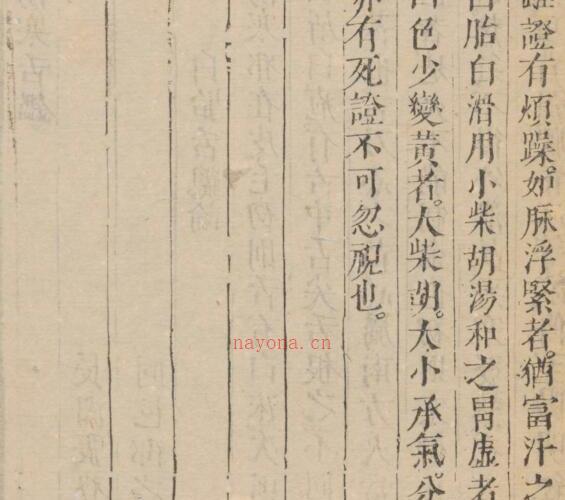 證有煩躁。如脈浮緊者。猶當汗之
白胎白滑用小柴胡湯和之胃虛者
色少變黃者。大柴胡。大小承氣。分
亦有死證不可忽視也。
nayona.cn